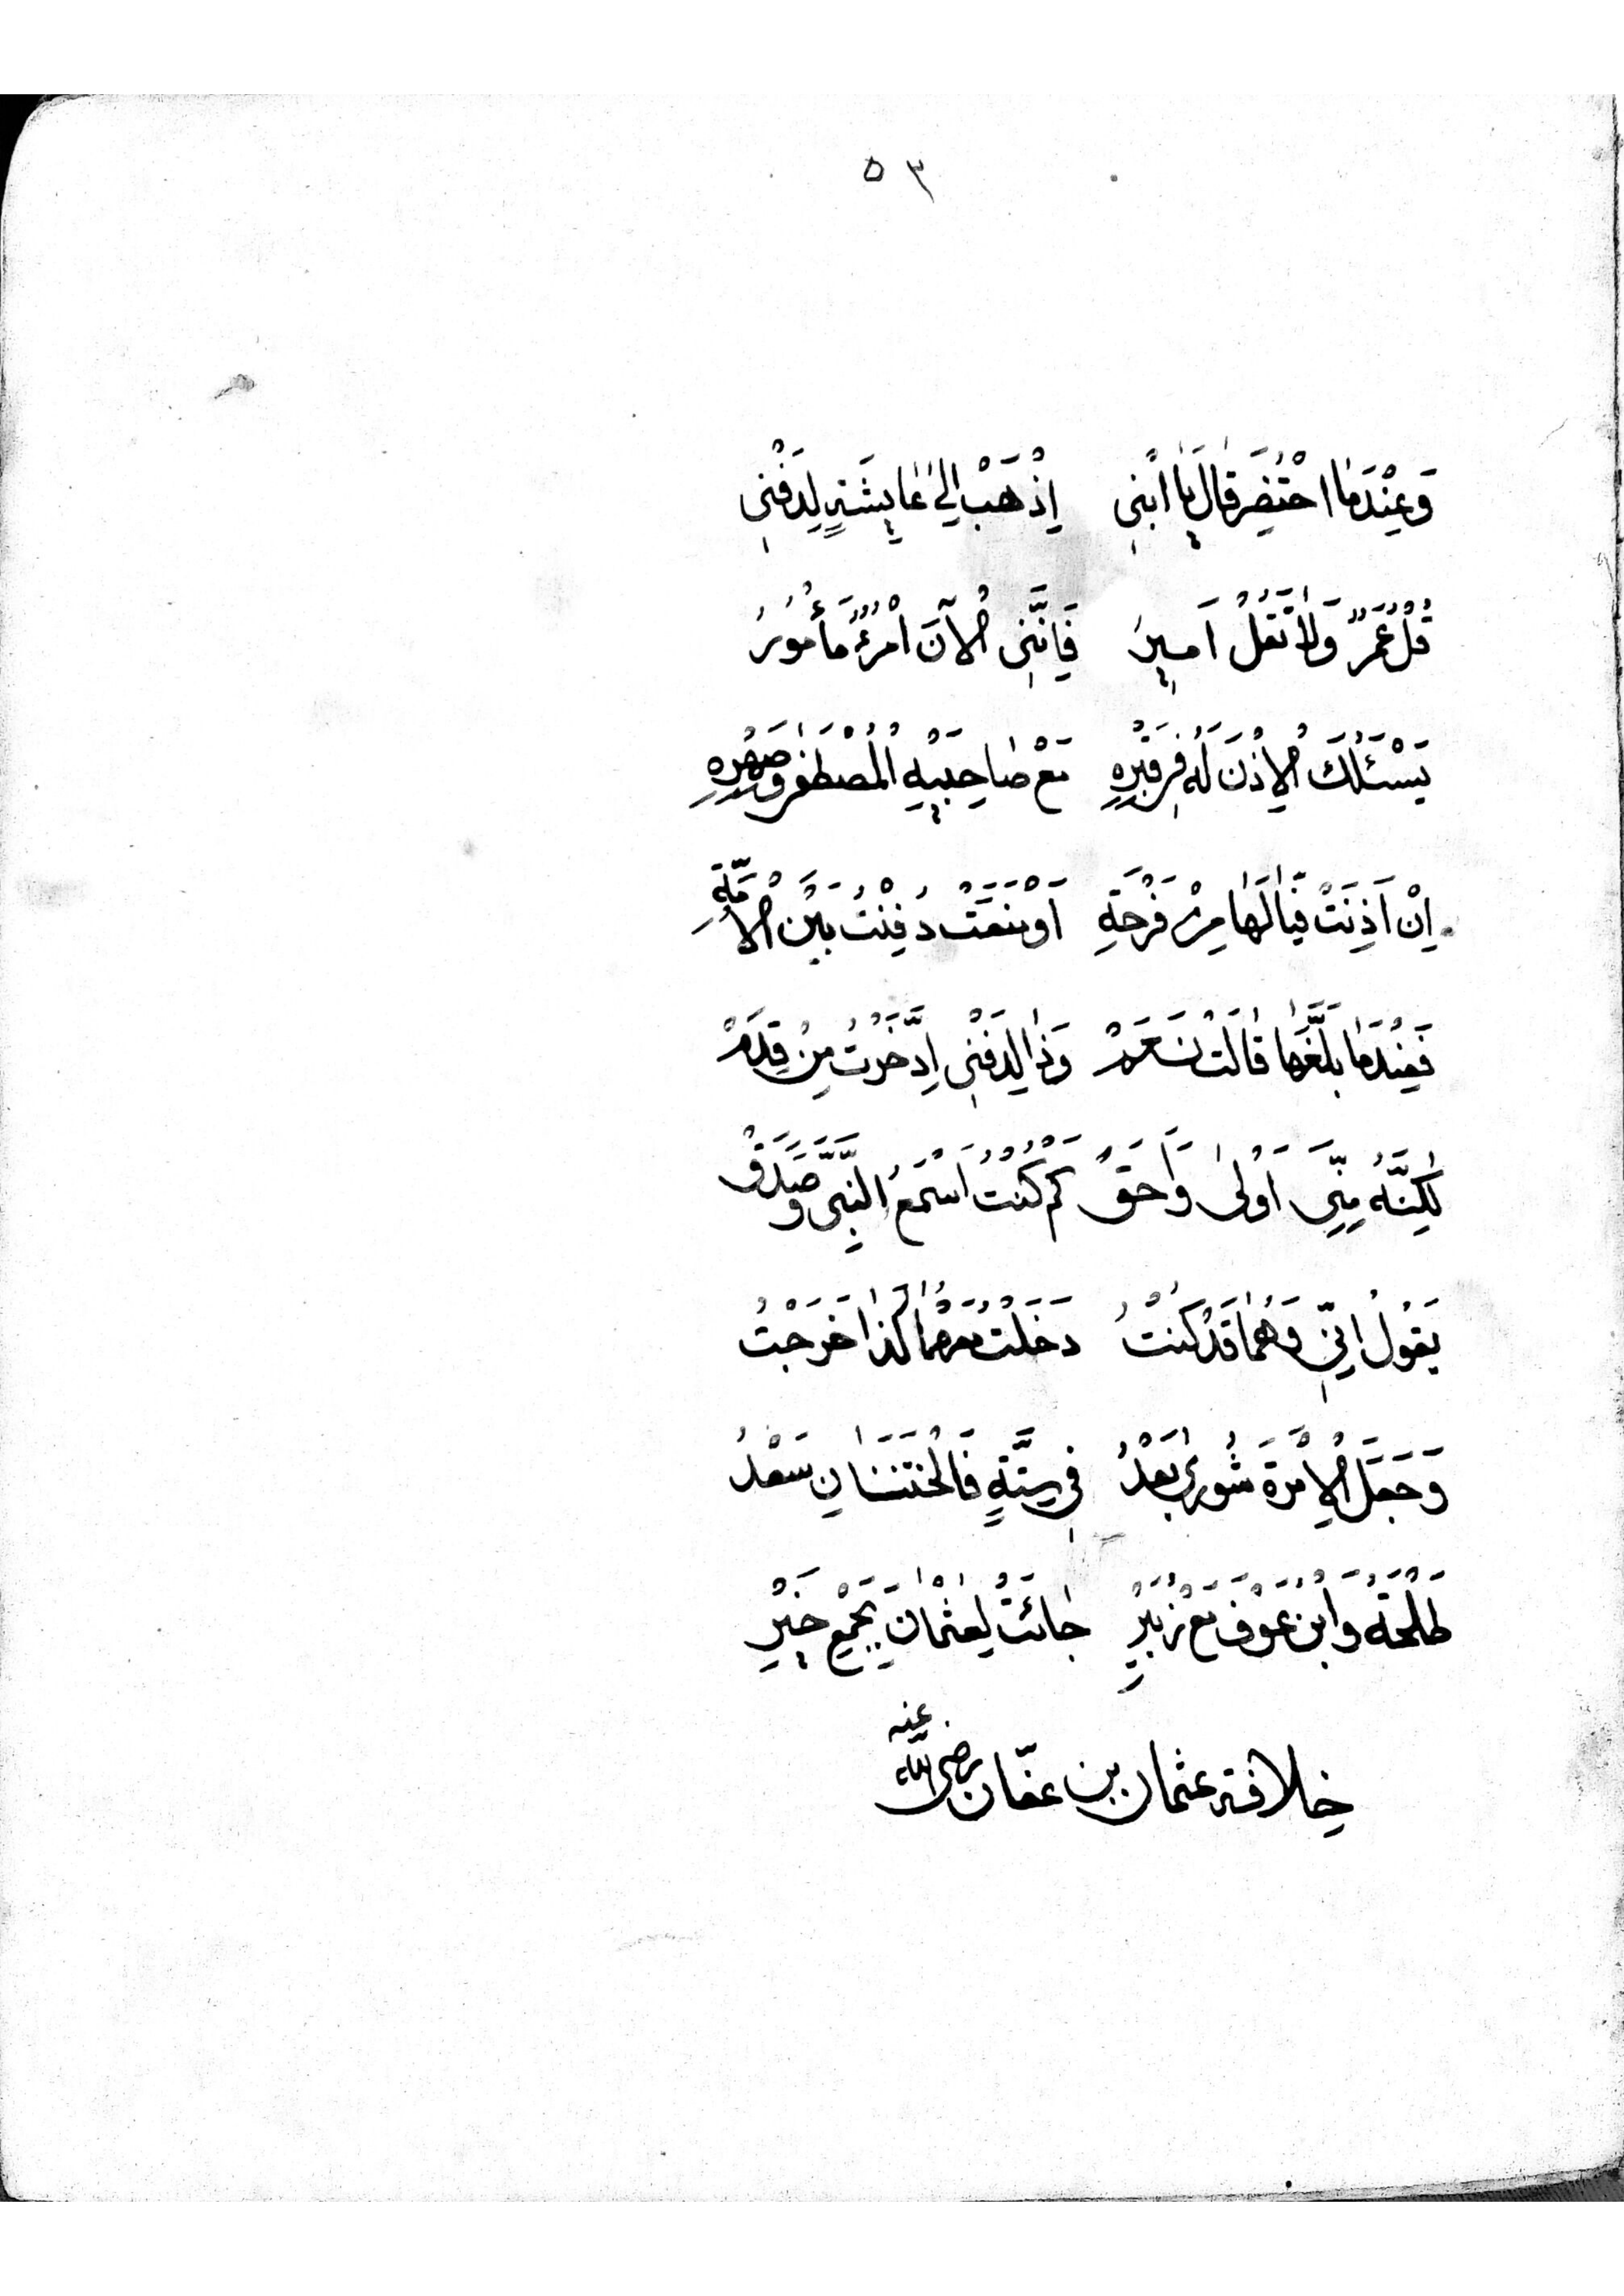 ٥٣
وَعِنْدَمَا احْتُضِرَ قَالَ يَا ابْنِي اِذْهَبْ اِلَىٰ عَايِشَةٍ لِدَفْنِي
قُلْ عُمَرٌ وَلَا تَقُلْ اَمِيرُ فَاِنَّنِي الْآنَ امْرُءٌ مَأْمُورُ
يَسْئَلُكَ الْاِذْنَ لَهُ فِي قَبْرِهِ مَعْ صَاحِبَيْهِ الْمُصْطَفَىٰ وَصِهْرِهِ
اِنْ اَذِنَتْ فَيَا لَهَا مِنْ فَرْحَةِ اَوْ مَنَعَتْ دُفِنْتُ بَيْنَ الْاُمَّةِ
فَعِنْدَمَا بَلَّغَهَا قَالَتْ نَعَمْ وَذَا لِدَفْنِي اِدَّخَرْتُ مِنْ قِدَمْ
لٰكِنَّهُ مِنِّيَ اَوْلَىٰ وَاَحَقّ كَمْ كُنْتُ اَسْمَعُ النَّبِيَّ وَصَدَقْ
يَقُولُ اِنِّي وَهُمَا قَدْ كُنْتُ دَخَلْتُ مَعْهُمَا كَذَا خَرَجْتُ
وَجَعَلَ الْاِمْرَةَ شُورَىٰ بَعْدُ فِي سِتَّةٍ فَالْخَتَنَانِ سَعْدُ
طَلْحَةُ وَابْنُ عَوْفَ مَعْ زُبَيْرِ جَائَتْ لِعُثْمَانَ بِجَمْعِ خَيْرِ
خلافة عثمان بن عفّان رضى اللّه عنه